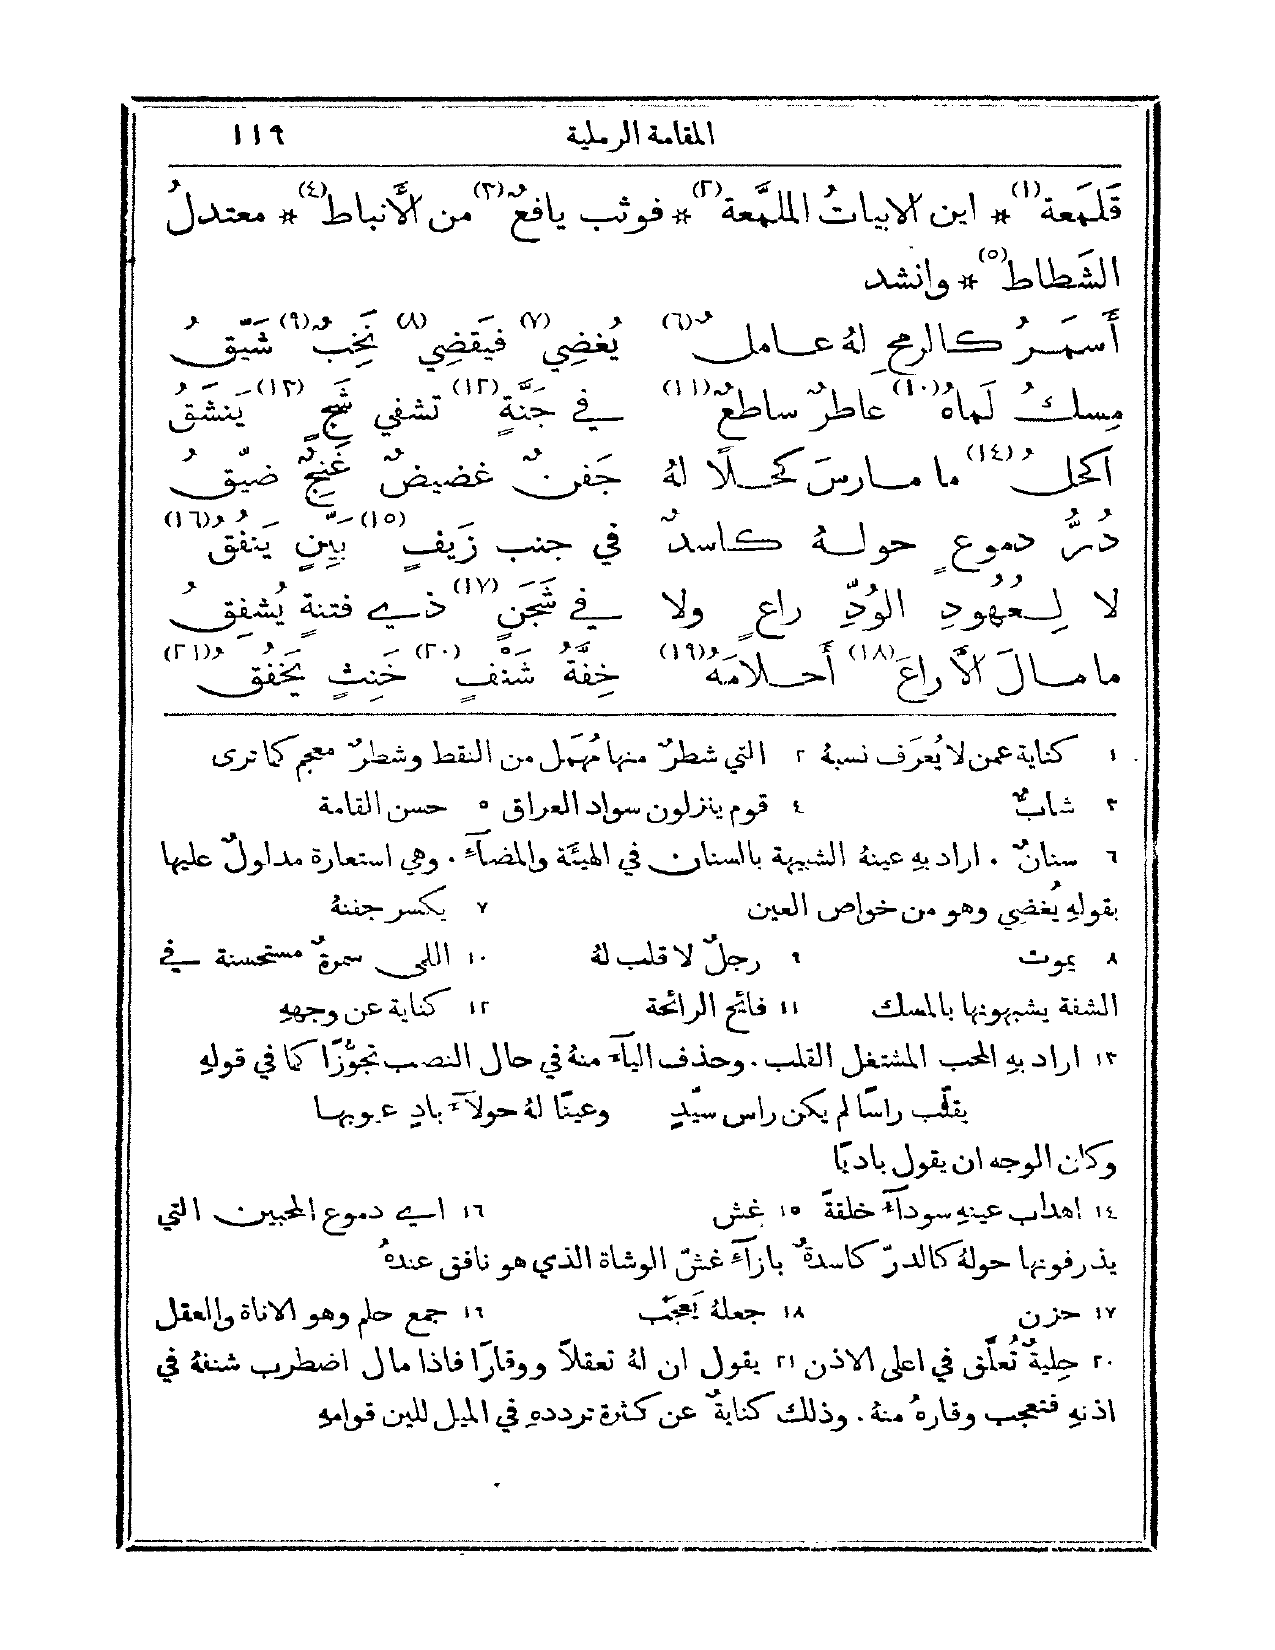 المقامة الرملية ١١٩
قَلَمعة(١) * اين الابياتُ الملمَّعة(٢) * فوثب يافعٌ(٣) من الأَنباط(٤) * معتدلُ
الشَطاط(٥) * وانشد
أَسمَرُ كالرمح لهُ عامل(٦) يُغضِي(٧) فيَقضِي(٨) نَخِبٌ(٩) شَيِّقُ
مِسكُ لَماهُ(١٠) عاطرٌ ساطعٌ(١١) في جَنةٍ(١٢) تشفي شَجٍ(١٣) يَنشَقُ
اكحلُ(١٤) ما مارسَ كحلًا لهُ جَفنٌ غضيضٌ غَنِجٌ ضيّقُ
دُرُّ دموعٍ حولهُ كاسدٌ في جنب زَيفٍ(١٥) بيِّنٍ ينفُقُ(١٦)
لا لِعُهُودِ الوُدِّ راعٍ ولا في شَجَنٍ(١٧) ذي فتنةٍ يُشفِقُ
ما مالَ الَّا راعَ(١٨) أَحلامَهُ(١٩) خِفَّةُ شَنفٍ(٢٠) خَنِثٍ يَخفُقُ(٢١)
١ كناية عمن لا يُعرَف نسبهُ ٢ التي شطرٌ منها مُهمَل من النقط وشطرٌ معجم كما ترى
٣ شابٌّ ٤ قوم ينزلون سواد العراق ٥ حسن القامة
٦ سنانٌ . اراد بهِ عينهُ الشبيهة بالسنان في الهيئة والمضآء . وهي استعارة مدلولٌ عليها
بقولهِ يُغضِي وهو من خواص العين ٧ يكسر جفنهُ
٨ يموت ٩ رجلٌ لا قلب لهُ ١٠ اللمى سمرةٌ مستحسنة في
الشفة يشبهونها بالمسك ١١ فائح الرائحة ١٢ كناية عن وجههِ
١٣ اراد بهِ المحب المشتغل القلب . وحذف اليآء منهُ في حال النصب تجوُّزًا كما في قولهِ
يقلّب راسًا لم يكن راس سيّدٍ وعينًا لهُ حولآء بادٍ عيوبها
وكان الوجه ان يقول باديًا
١٤ اهداب عينهِ سودآء خلقةً ١٥ غش ١٦ اي دموع المحبين التي
يذرفونها حولهُ كالدرّ كاسدةٌ بازآء غشّ الوشاة الذي هو نافق عندهُ
١٧ حزن ١٨ جعلهُ يَعجَب ١٩ جمع حلم وهو الاناة والعقل
٢٠ حِليةٌ تُعلَّق في اعلى الاذن ٢١ يقول ان لهُ تعقلًا ووقارًا فاذا مال اضطرب شنفهُ في
اذنهِ فتعجب وقارهُ منهُ . وذلك كنايةٌ عن كثرة ترددهِ في الميل للين قوامهِ